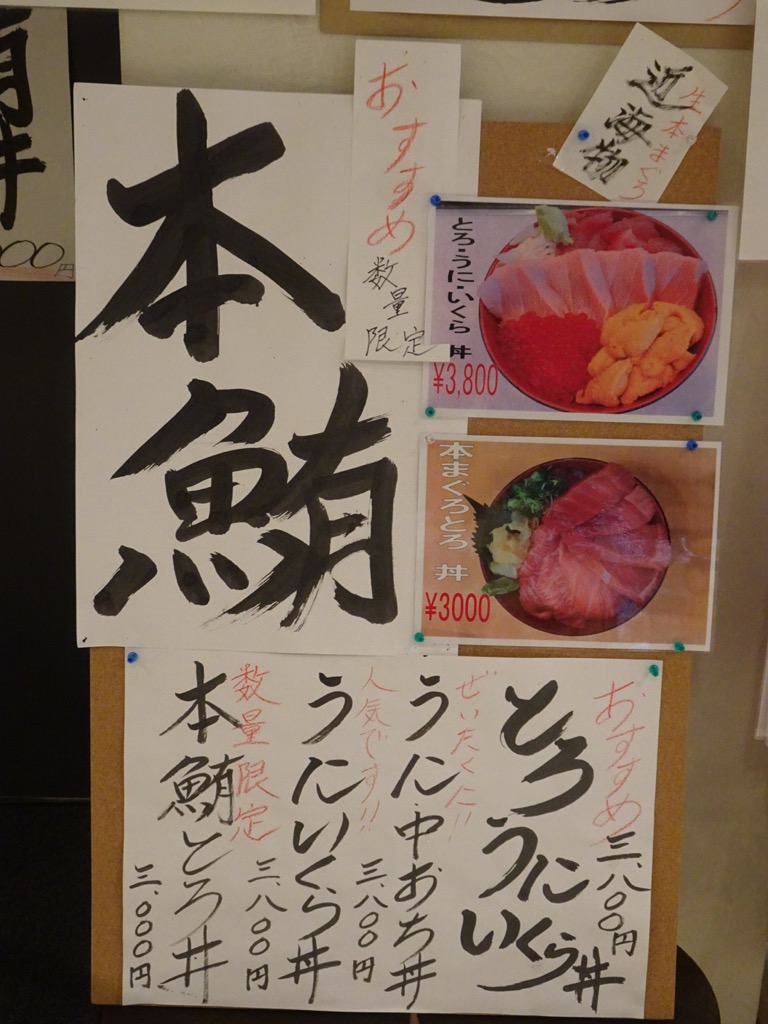 本鮪
おすすめ
数量
限定
近海物
生本まぐろ
とろ・うに・いくら 丼
¥3,800
本まぐろとろ 丼
¥3000
おすすめ
とろうにいくら丼
三、八〇〇円
ぜいたくに!!
うに・中おち丼
三、八〇〇円
人気です!!
うにいくら丼
三、八〇〇円
数量限定
本鮪とろ丼
三、〇〇〇円
000円